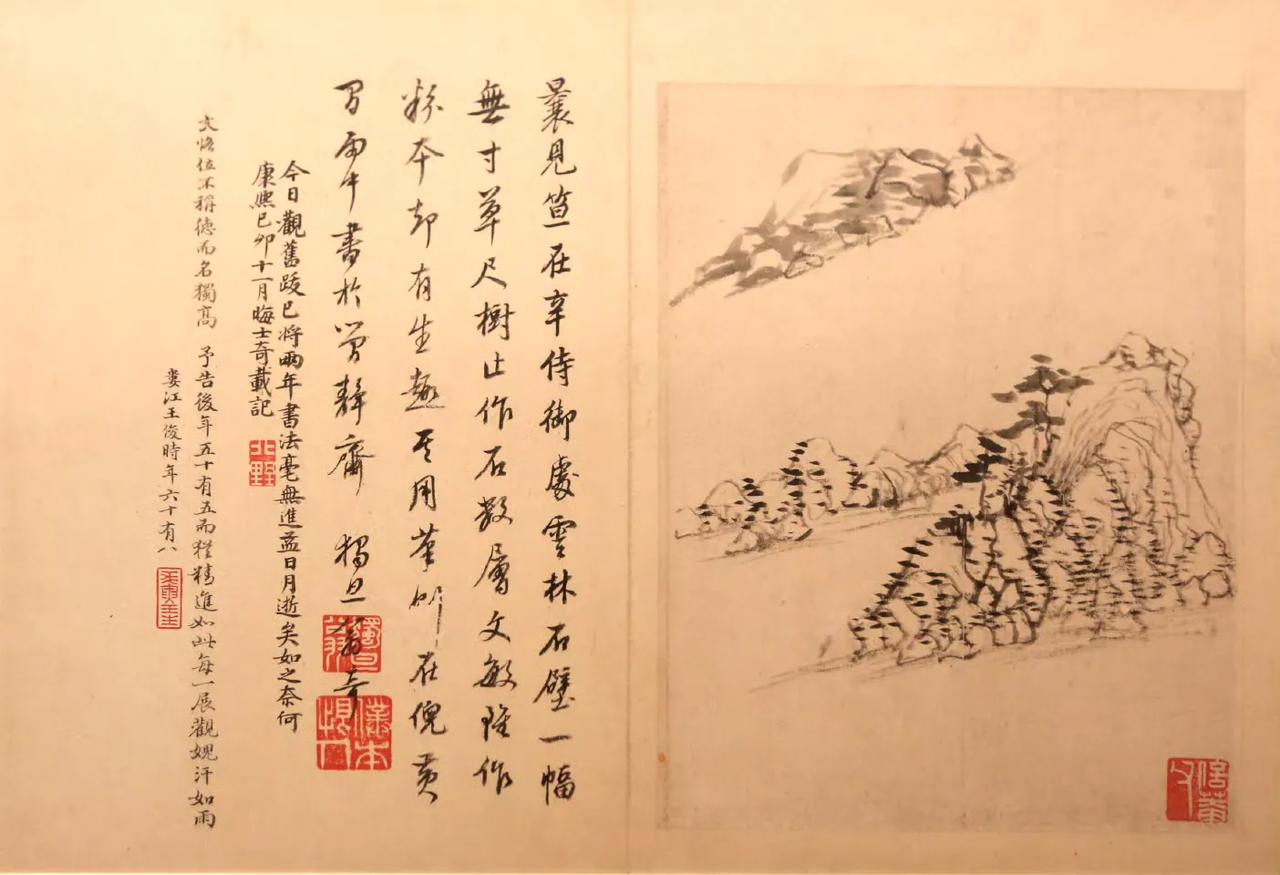 曩見笪在辛侍御處雲林石壁一幅
無寸草尺樹止作石數層文敏雖作
粉本却有生趣其用筆卽在倪黃
間書於簡靜齋 獨旦翁奇
今日觀舊跋已將兩年書法毫無進益日月逝矣如之奈何
康熙己卯十一月晦士奇載記
北墅
獨旦翁
文恪位不稱德而名獨高 予告後年五十有五而猶精進如此每一展觀媿汗如雨
婁江王俊時年六十有八